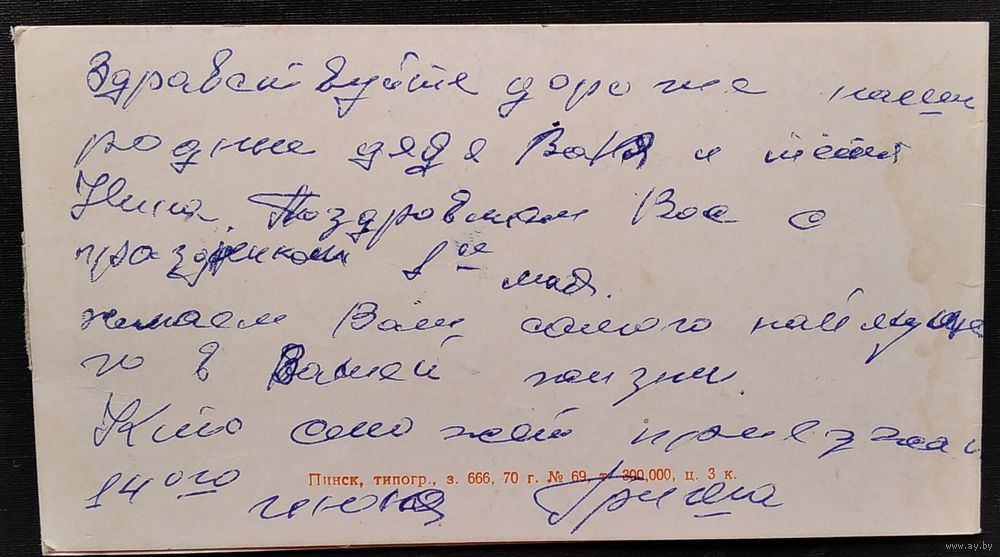 Здравствуйте дороже наши
родные дядя Ваня и тётя
Нина. Поздровляем Вас с
праздником 1ое мая.
желаем Вам самого наилучше
го в Вашей жизни.
Кто сможет приезжай
14ого июня Гриша
Пинск, типогр., з. 666, 70 г. № 69, т. 300,000, ц. 3 к.
www.ay.by